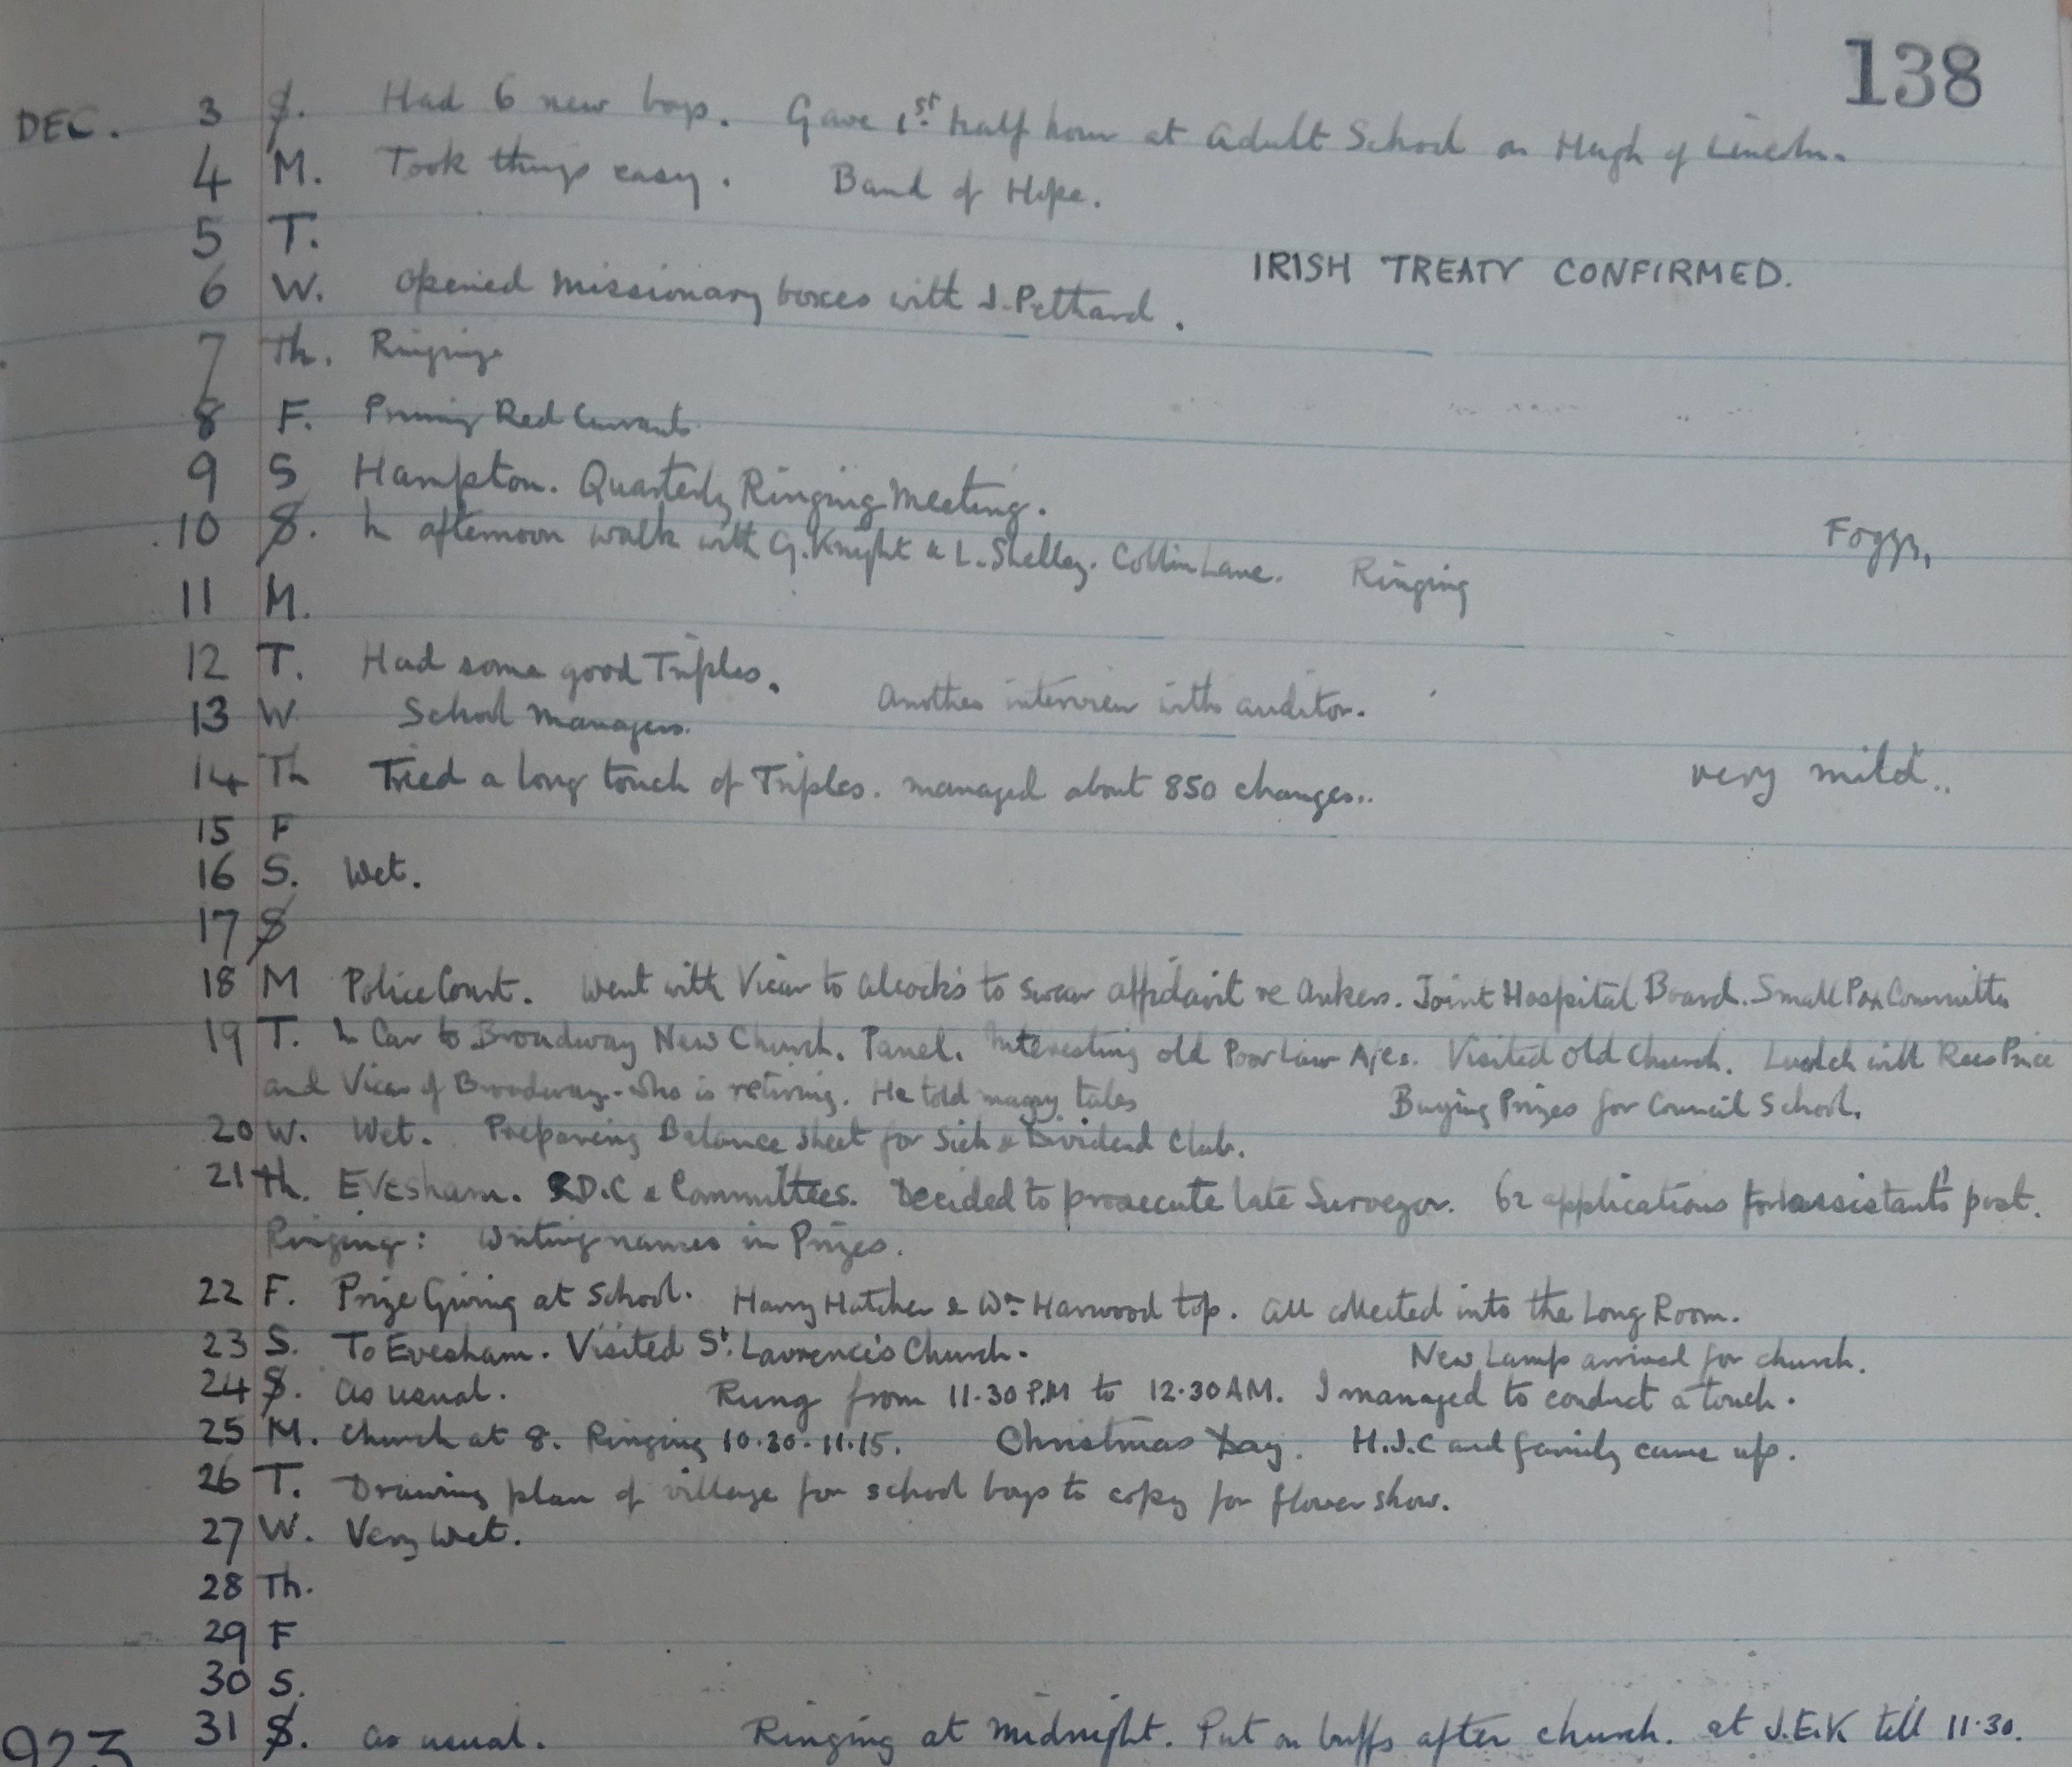 138
DEC. 3 S. Had 6 new boys. Gave 1st half hour at Adult School on Hugh of Lincoln.
4 M. Took things easy. Band of Hope.
5 T.
IRISH TREATY CONFIRMED.
6 W. Opened missionary boxes with J. Pethard.
7 Th. Ringing
8 F. Pruning Red Currants
9 S Hampton. Quarterly Ringing Meeting.
10 S. In afternoon walk with G. Knight & L. Shelley. Collin Lane. Ringing Foggy.
11 M.
12 T. Had some good Triples. Another interview with auditor.
13 W School Managers.
14 Th Tried a long touch of Triples. managed about 850 changes.. very mild..
15 F
16 S. Wet.
17 S
18 M Police Court. Went with Vicar to Alcock's to swear affidavit re Ankers. Joint Hospital Board. Small Pox Committee
19 T. In Car to Broadway New Church. Panel. Interesting old Poor Law A/cs. Visited Old Church. Lunch with Rees Price
and Vicar of Broadway - who is retiring. He told many tales Buying Prizes for Council School.
20 W. Wet. Preparing Balance Sheet for Sick & Dividend Club.
21 Th. Evesham. R.D.C & Committees. Decided to prosecute late Surveyor. 62 applications for assistant's post.
Ringing: Writing names in Prizes.
22 F. Prize Giving at School. Harry Hatcher & Wm Harwood top. All collected into the Long Room.
23 S. To Evesham. Visited St. Lawrence's Church. New Lamp arrived for church.
24 S. As usual. Rung from 11.30 P.M to 12.30 AM. I managed to conduct a touch.
25 M. Church at 8. Ringing 10.30-11.15. Christmas Day. H.J.C and family came up.
26 T. Drawing plan of village for school boys to copy for flower show.
27 W. Very Wet.
28 Th.
29 F
30 S.
31 S. As usual. Ringing at midnight. Put on buffs after church. at J.E.K till 11.30.
923